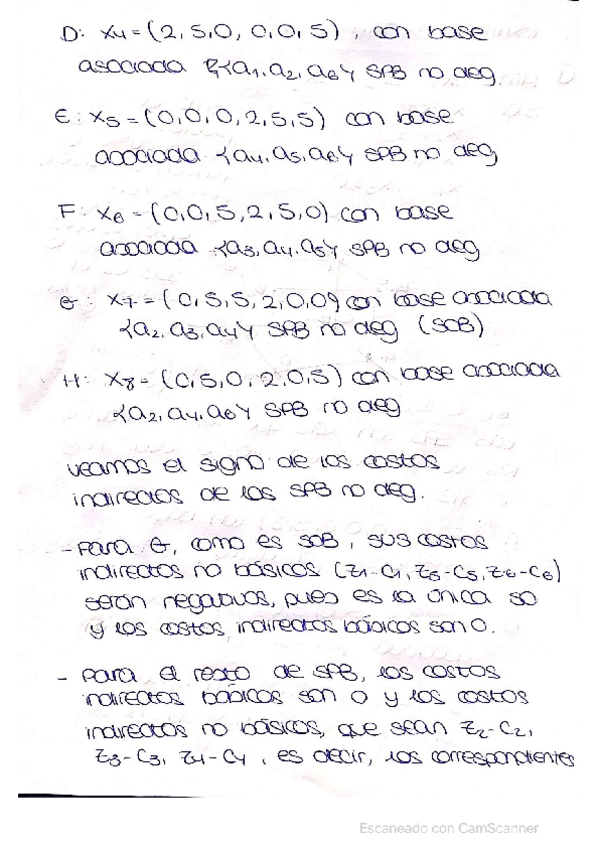 D: x4 = (2, 5, 0, 0, 0, 5), con base
asociada {a1, a2, a6} SPB no deg
E: x5 = (0, 0, 0, 2, 5, 5) con base
asociada {a4, a5, a6} SPB no deg
F: x6 = (0, 0, 5, 2, 5, 0) con base
asociada {a3, a4, a5} SPB no deg
G: x7 = (0, 5, 5, 2, 0, 0) con base asociada
{a2, a3, a4} SPB no deg (SOB)
H: x8 = (0, 5, 0, 2, 0, 5) con base asociada
{a2, a4, a6} SPB no deg
veamos el signo de los costos
indirectos de las SPB no deg.
- Para G, como es SOB, sus costos
indirectos no básicos (z1-c1, z5-c5, z6-c6)
serán negativos, pues es la única SO
y los costos indirectos básicos son 0.
- Para el resto de SPB, los costos
indirectos básicos son 0 y los costos
indirectos no básicos, que sean z2-c2,
z3-c3, z4-c4, es decir, los correspondientes
Escaneado con CamScanner